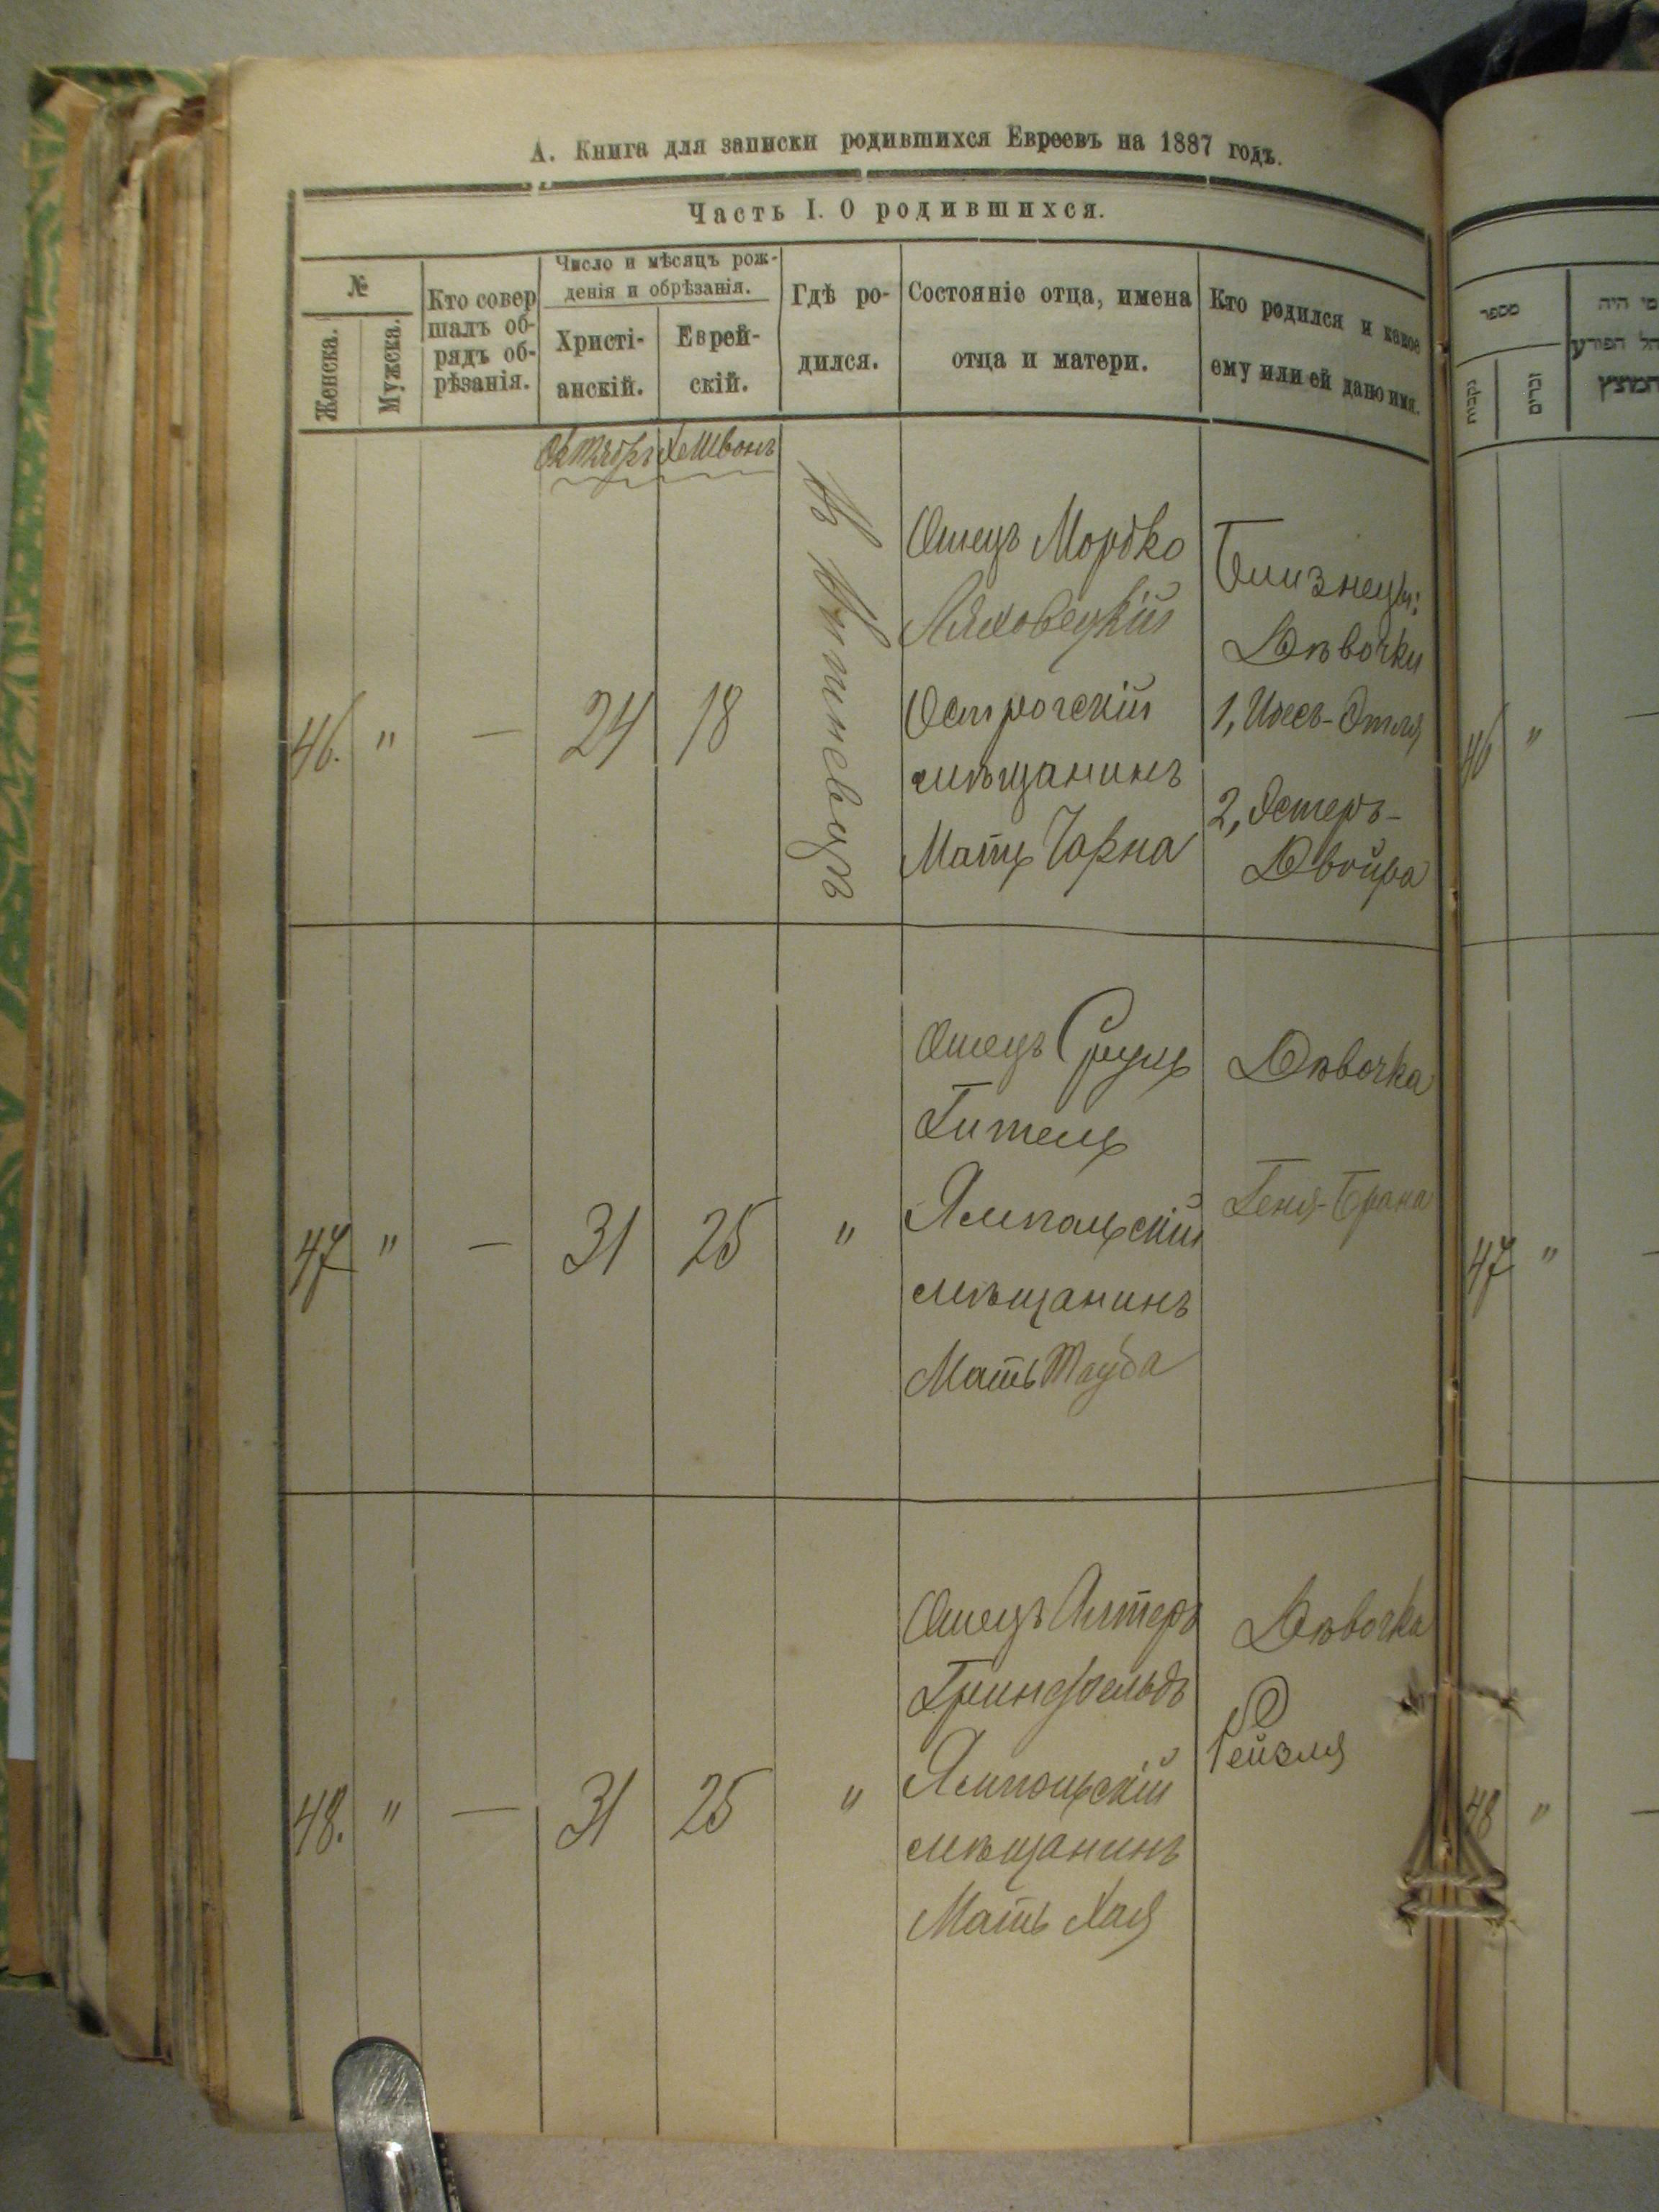 А. Книга для записки родившихся Евреевъ на 1887 годъ.
Часть I. О родившихся.
№
Женска.
Мужска.
Кто совер
шалъ об-
рядъ об-
рѣзанія.
Число и мѣсяцъ рож-
денія и обрѣзанія.
Христі-
анскій.
Еврей-
скій.
Гдѣ ро-
дился.
Состояніе отца, имена
отца и матери.
Кто родился и какое
ему или ей дано имя.
Октябрь Хешвонъ
46. " — 24 18
Отецъ Мордко
Ляховецкій
Острогскій
мѣщанинъ
Мать Чарна
Близнецы:
Дѣвочки
1, Этля
2, Эстеръ-
Двойра
47 " — 31 25 "
Отецъ Сруль
Гитель
Ямпольскій
мѣщанинъ
Мать Тауба
Дѣвочка
Геня-Брана
48. " — 31 25 "
Отецъ Алтеръ
Гринфельдъ
Ямпольскій
мѣщанинъ
Мать Хая
Дѣвочка
Рейзля
מספר
נקבות
זכרים
מי היה
המוצץ
46 " —
47 " —
48 " —